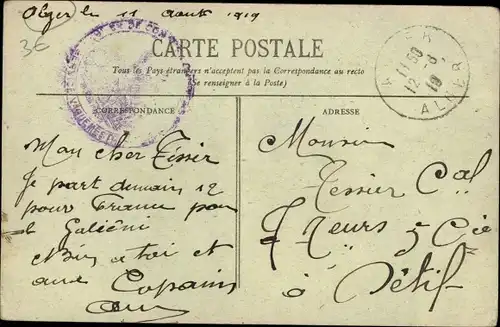 Alger le 11 Août 1919
36
CARTE POSTALE
Tous les Pays étrangers n'acceptent pas la Correspondance au recto
(Se renseigner à la Poste)
CORRESPONDANCE
ADRESSE
ALGER
11 50
12 - 8
19
ALGER
VAGUEMESTRE
Mon cher Tissier
Je part demain 12
pour France par
le Galiéni
Bien a toi et
aux Copains
Monsieur
Tessier Cal
5 Cie
à Sétif